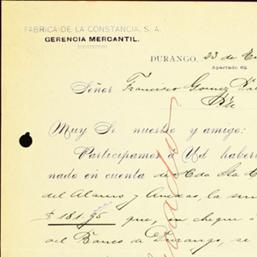 FÁBRICA DE LA CONSTANCIA, S. A.
GERENCIA MERCANTIL.
DURANGO, 23 de
Apartado 62.
Señor Francisco Gomez
Pte
Muy Sr nuestro y amigo:
Participamos á Ud haber
nado en cuenta de
del Alamo y Anexas, la
$ 181.95 que, en cheque
del Banco de Durango, se